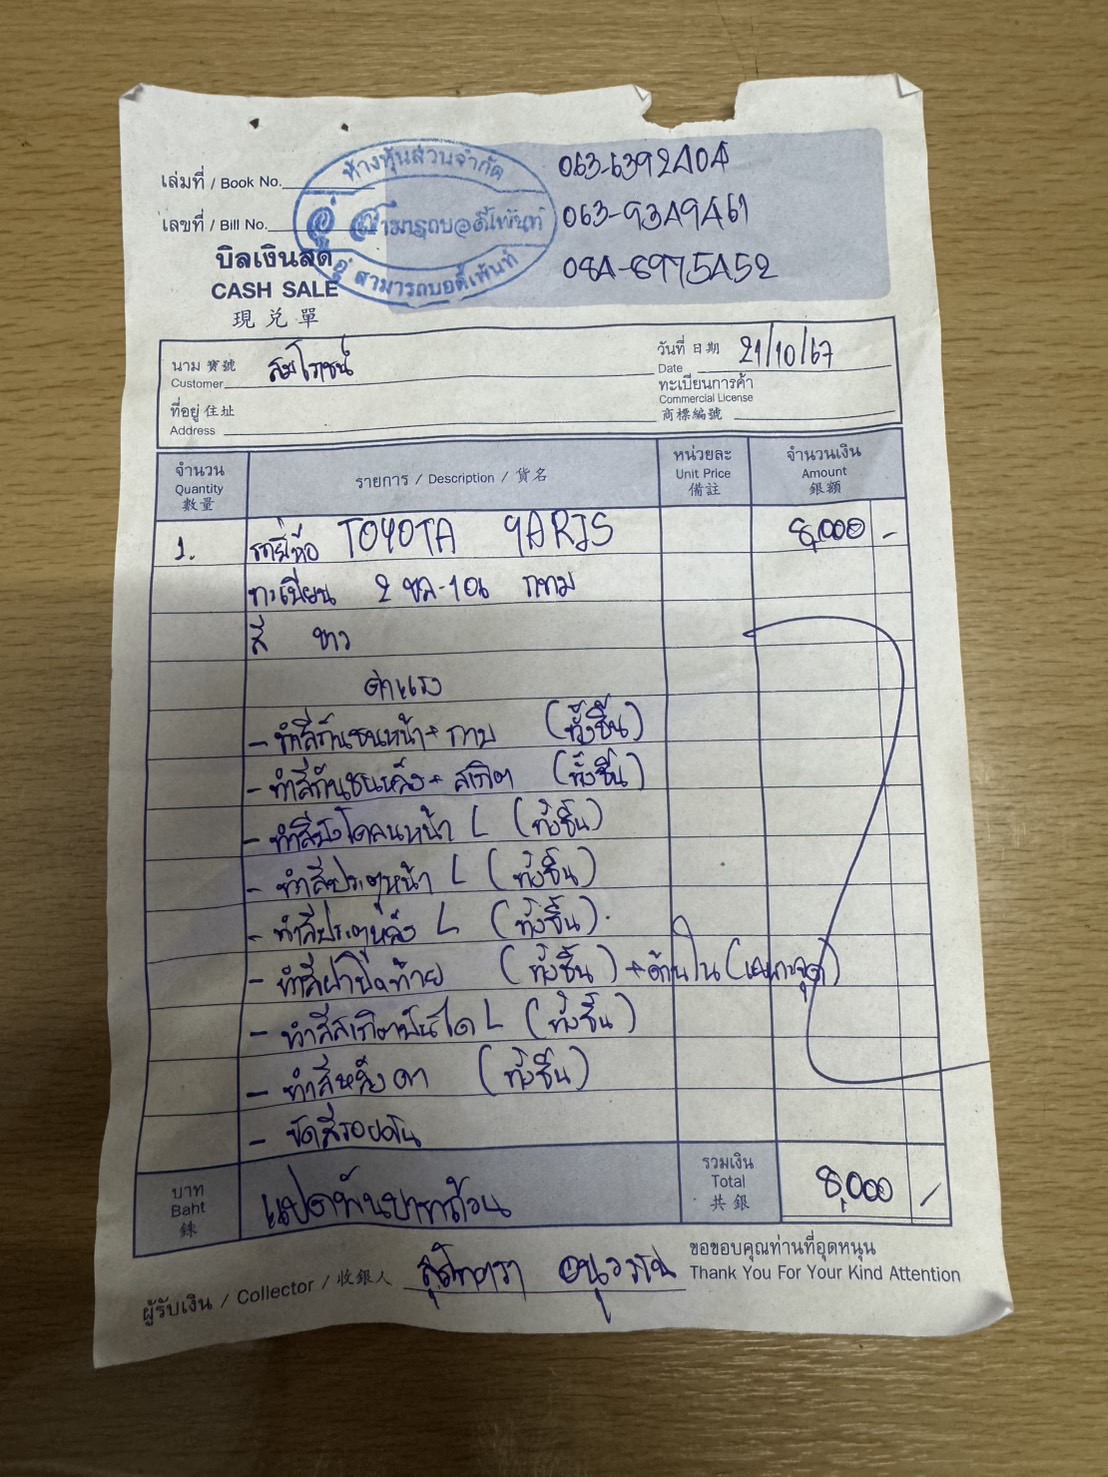 ห้างหุ้นส่วนจำกัด
อู่ สามารถบอดี้เพ้นท์
อู่ สามารถบอดี้เพ้นท์
063-6392404
063-9349461
084-6975452
เล่มที่ / Book No.
เลขที่ / Bill No.
บิลเงินสด
CASH SALE
現兌單
นาม 寶號 Customer
วันที่ 日期 Date 21/10/67
ที่อยู่ 住址 Address
ทะเบียนการค้า Commercial License 商標編號
จำนวน Quantity 數量 รายการ / Description / 貨名 หน่วยละ Unit Price 備註 จำนวนเงิน Amount 銀額
1. รถยี่ห้อ TOYOTA YARIS 8,000 -
ทะเบียน 2 ขล-106 กทม
สี ขาว
ค่าแรง
- ทำสีกันชนหน้า + กาบ (ทั้งชิ้น)
- ทำสีกันชนหลัง + สเกิต (ทั้งชิ้น)
- ทำสีบังโคลนหน้า L (ทั้งชิ้น)
- ทำสีประตูหน้า L (ทั้งชิ้น)
- ทำสีประตูหลัง L (ทั้งชิ้น)
- ทำสีฝาปิดท้าย (ทั้งชิ้น) + ด้านใน (เฉพาะจุด)
- ทำสีสเกิตบันได L (ทั้งชิ้น)
- ทำสีหลังคา (ทั้งชิ้น)
- ขัดสีรอบคัน
บาท Baht 銖 แปดพันบาทถ้วน รวมเงิน Total 共銀 8,000 -
ผู้รับเงิน / Collector / 收銀人
ขอขอบคุณท่านที่อุดหนุน
Thank You For Your Kind Attention